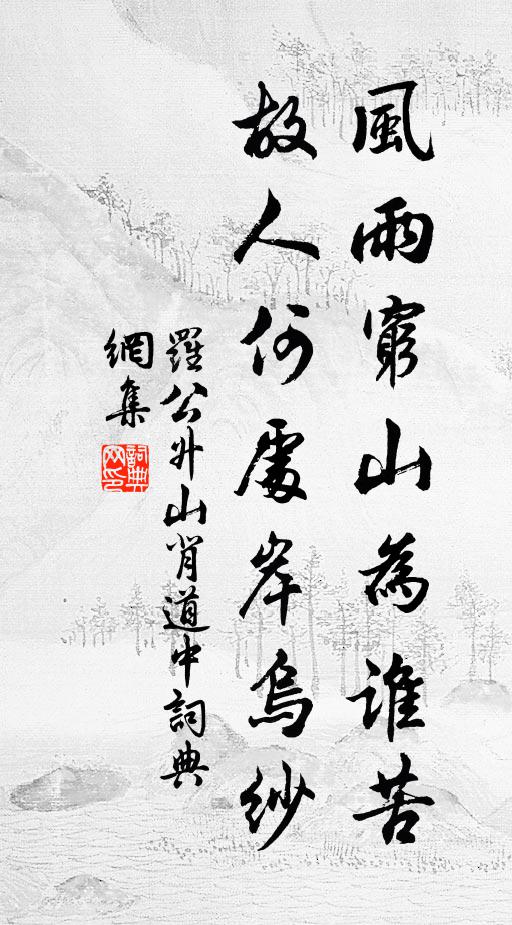 風雨窮山為誰苦
故人何處岸烏紗
羅公升山肖道中詞典
網集
詞典
网印